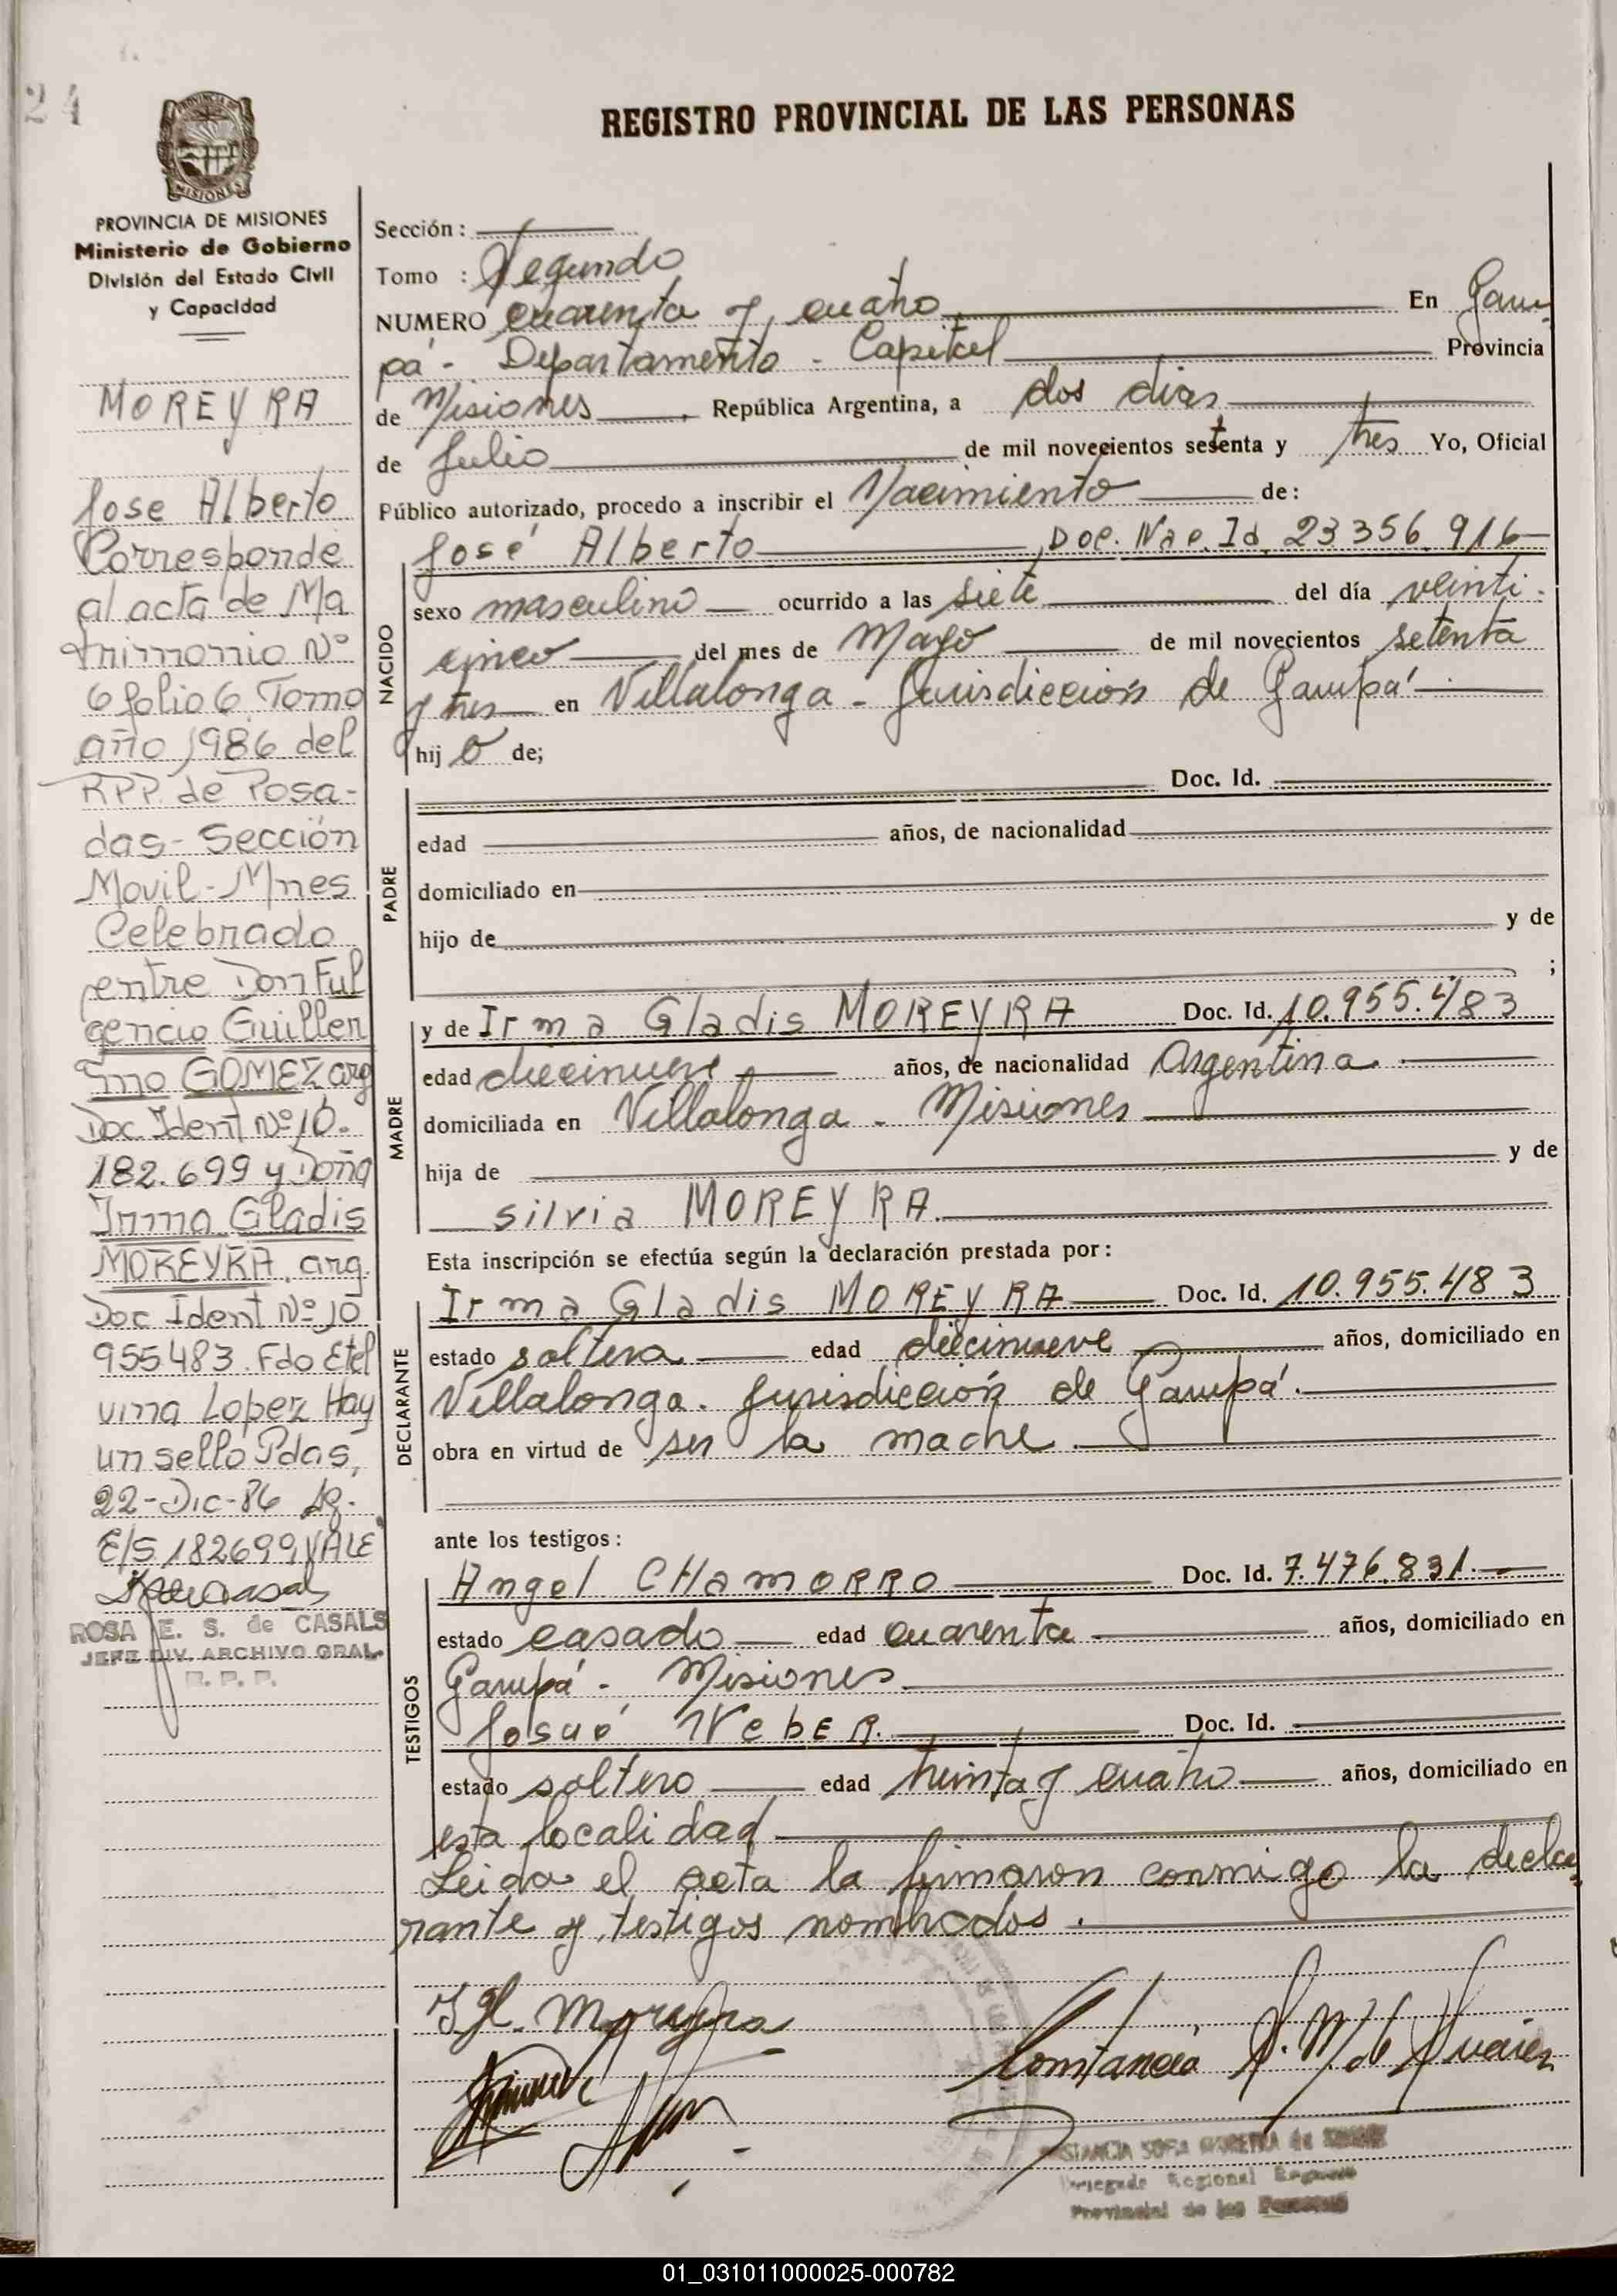 24
REGISTRO PROVINCIAL DE LAS PERSONAS
MISIONES
PROVINCIA DE MISIONES
Ministerio de Gobierno
División del Estado Civil
y Capacidad
MOREYRA
Jose Alberto
Corresponde
al acta de Ma
trimonio Nº
6 folio 6 Tomo
año 1986 del
RPP. de Posa-
das- Sección
Movil- Mnes
Celebrado
entre Don Ful
gencio Guiller
mo GOMEZ arg
Doc Ident Nº 10.
182.699 y Doña
Irma Gladis
MOREYRA. arg.
Doc Ident Nº 10
955483. Fdo Etel
vina Lopez Hay
un sello Pdas,
22-Dic-86
E/S 182699 VALE
ROSA E. S. de CASALS
JEFE DIV. ARCHIVO GRAL.
R. P. P.
Sección :
Tomo : Segundo
NUMERO cuarenta y cuatro En Garu-
pá - Departamento - Capital Provincia
de Misiones , República Argentina, a dos dias
de Julio de mil novecientos setenta y tres Yo, Oficial
Público autorizado, procedo a inscribir el Nacimiento de:
José Alberto Doc. Nac. Id. 23 356. 916
NACIDO
sexo masculino ocurrido a las siete del día veinti-
cinco del mes de Mayo de mil novecientos setenta
y tres en Villalonga - Jurisdicción de Garupá
hij o de;
PADRE
Doc. Id.
edad años, de nacionalidad
domiciliado en
hijo de y de
;
MADRE
y de Irma Gladis MOREYRA Doc. Id. 10.955.483
edad diecinueve años, de nacionalidad Argentina
domiciliada en Villalonga - Misiones
hija de y de
silvia MOREYRA.
Esta inscripción se efectúa según la declaración prestada por:
DECLARANTE
Irma Gladis MOREYRA Doc. Id. 10.955.483
estado soltera edad diecinueve años, domiciliado en
Villalonga. Jurisdicción de Garupá.
obra en virtud de ser la madre.
ante los testigos:
TESTIGOS
Angel CHamORRO Doc. Id. 7.476.831.
estado casado edad cuarenta años, domiciliado en
Garupá - Misiones
Josué WebER. Doc. Id.
estado soltero edad treinta y cuatro años, domiciliado en
esta localidad
Leida el acta la firmaron conmigo la decla-
rante y testigos nombrados.
I Gl. Moreyra
Constancia S. M. de Suárez
STANCIA SOFIA MOREYRA de SUAREZ
Delegada Regional Registro
Provincial de las Personas
01_031011000025-000782